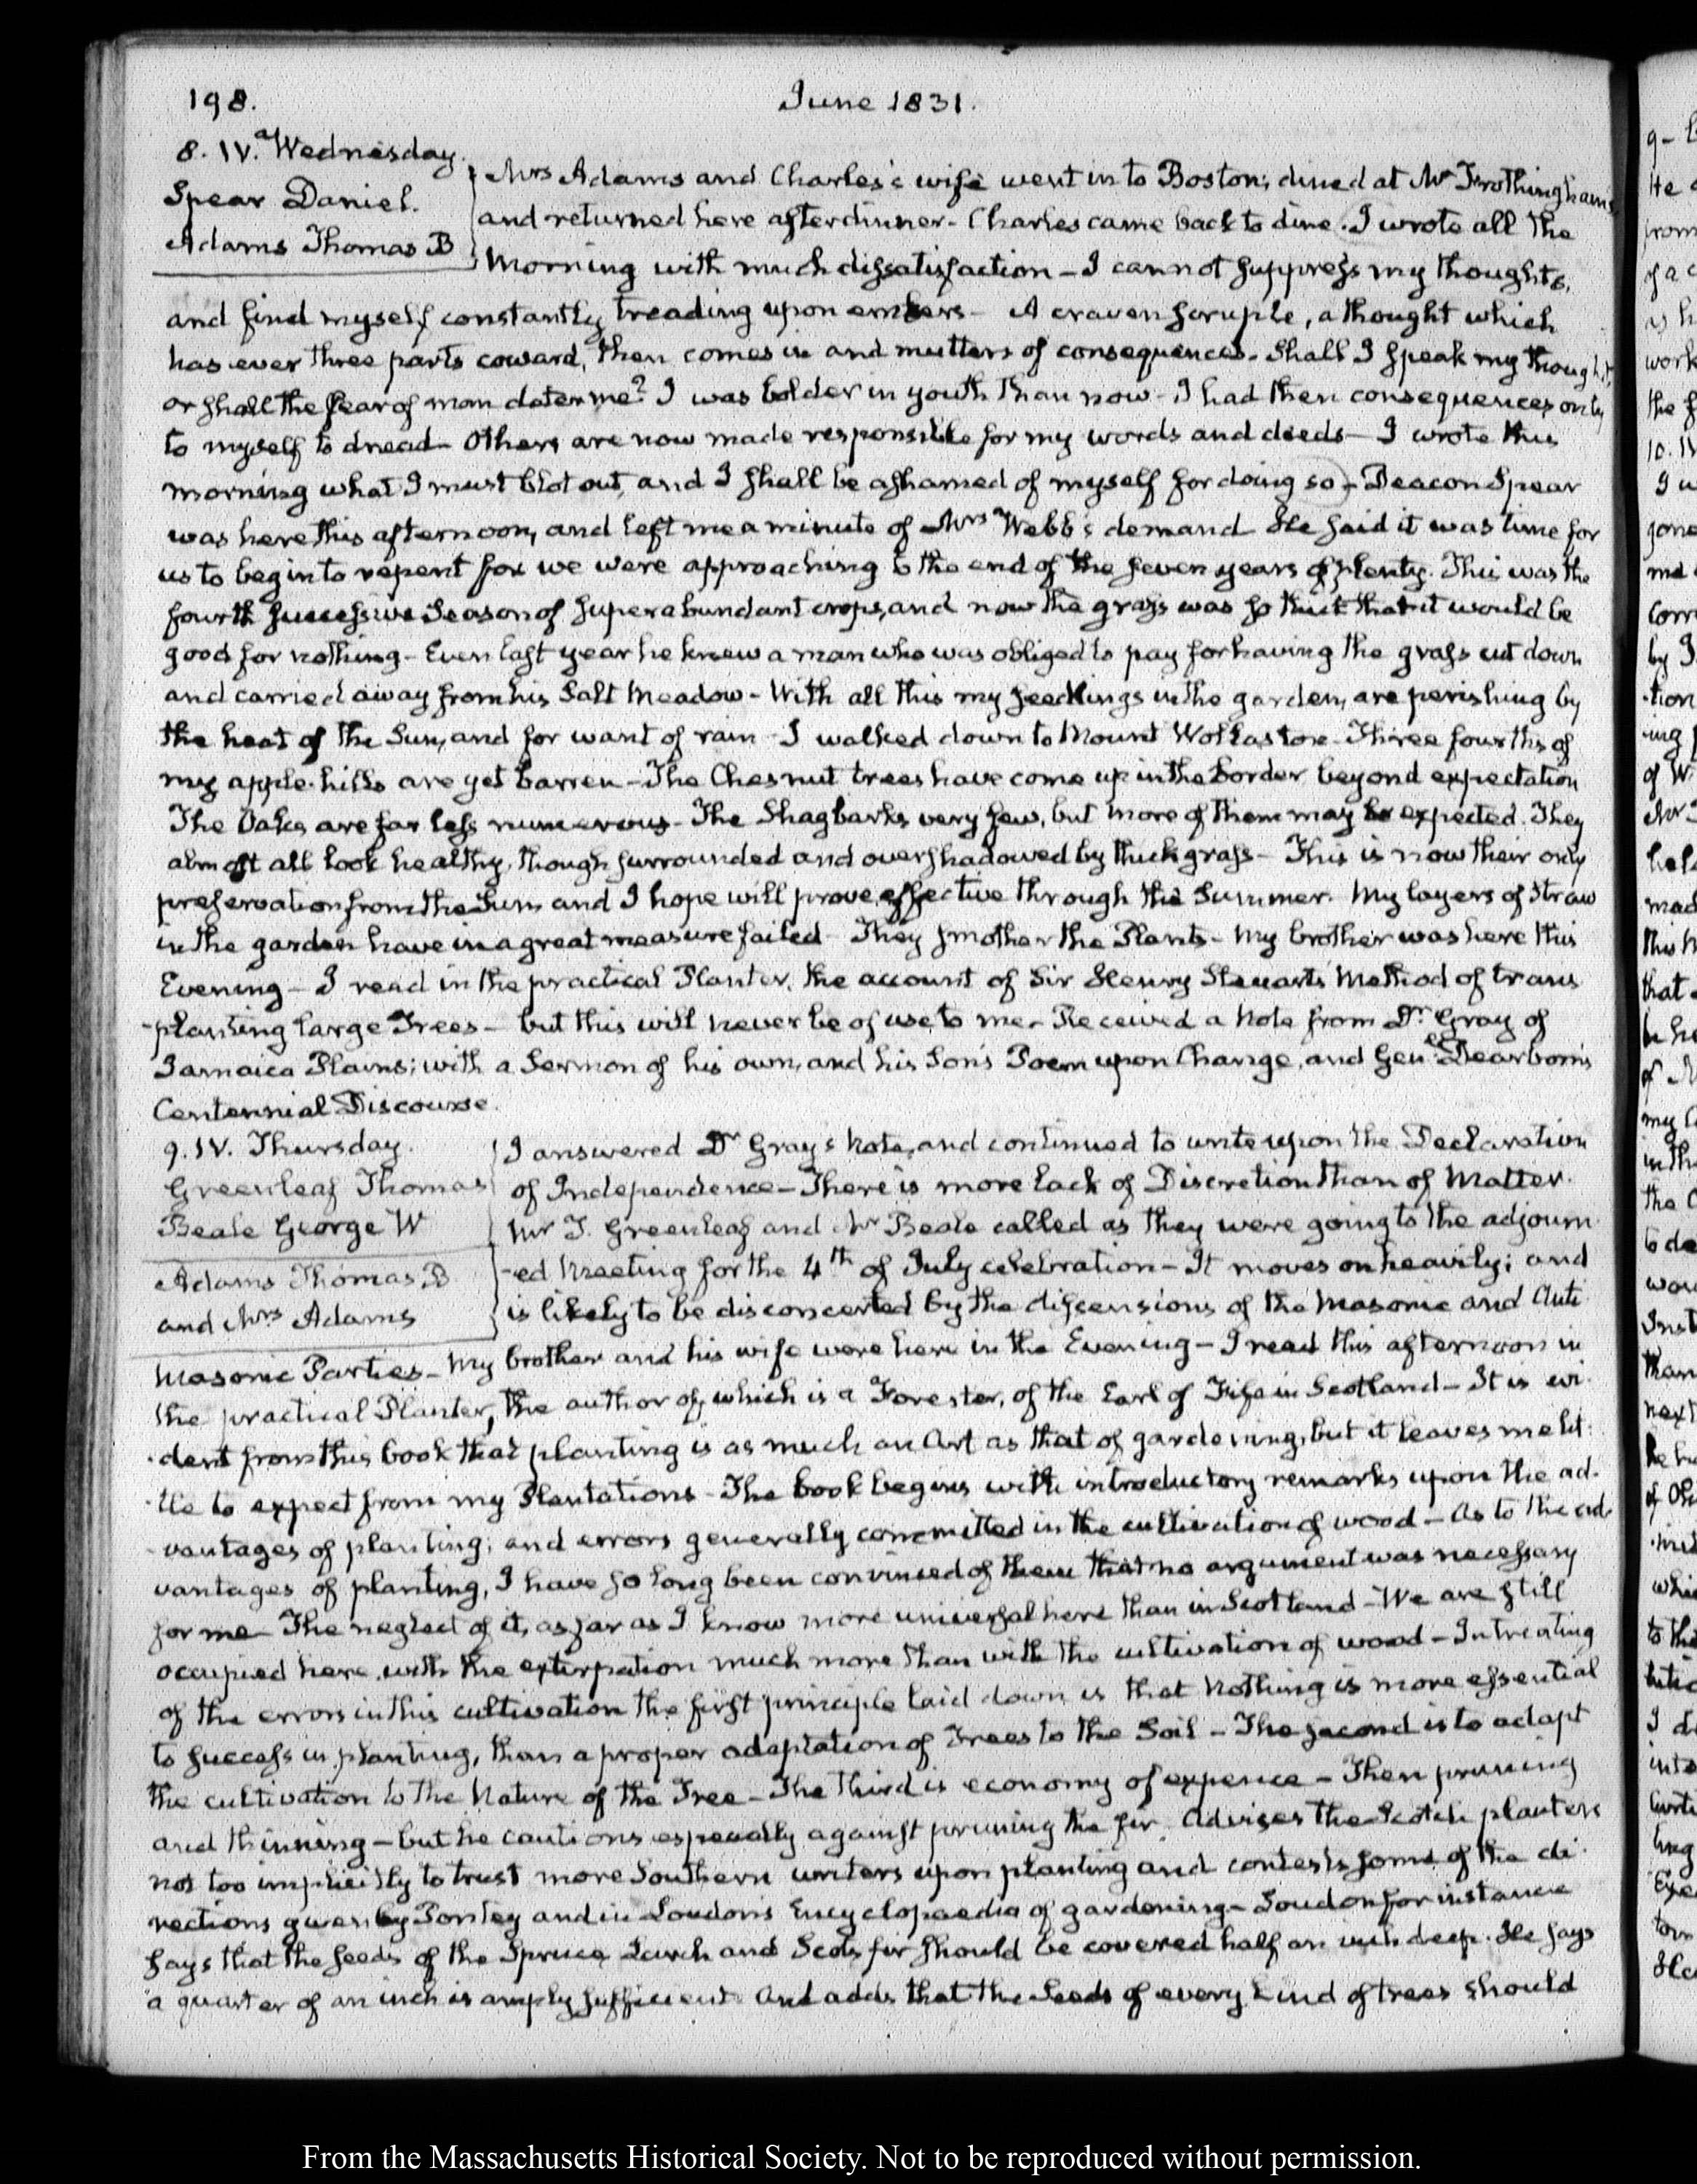 198.
June 1831.
8. IV. Wednesday.
Spear Daniel.
Adams Thomas B
Mrs Adams and Charles's wife went in to Boston; dined at Mr Frothingham's
and returned here after dinner - Charles came back to dine. I wrote all the
Morning with much dissatisfaction - I cannot suppress my thoughts,
and find myself constantly treading upon embers - A craven scruple, a thought which
has ever three parts coward, then comes in and mutters of consequences - Shall I speak my thoughts,
or shall the fear of man deter me? I was bolder in youth than now - I had then consequences only
to myself to dread - Others are now made responsible for my words and deeds - I wrote this
morning what I must blot out, and I shall be ashamed of myself for doing so - Deacon Spear
was here this afternoon, and left me a minute of Mrs Webb's demand He said it was time for
us to begin to repent for we were approaching to the end of the seven years of plenty. This was the
fourth successive Season of superabundant crops, and now the grass was so thick that it would be
good for nothing - Even last year he knew a man who was obliged to pay for having the grass cut down
and carried away from his Salt Meadow - With all this my seedlings in the garden, are perishing by
the heat of the Sun, and for want of rain - I walked down to Mount Wollaston - Three fourths of
my apple-hills are yet barren - The Chesnut trees have come up in the border beyond expectation
The Oaks are far less numerous - The Shagbarks very few, but more of them may be expected. They
almost all look healthy, though surrounded and overshadowed by thick grass - This is now their only
preservation from the Sun, and I hope will prove effective through the Summer. My layers of Straw
in the garden have in a great measure failed - They smother the Plants - My brother was here this
Evening - I read in the practical Planter, the account of Sir Henry Steuart's Method of trans
-planting large Trees - but this will never be of use to me - Received a Note from Dr Gray of
Jamaica Plains; with a Sermon of his own, and his Son's Poem upon Change, and Genl Dearborn's
Centennial Discourse.
9. IV. Thursday.
Greenleaf Thomas
Beale George W
Adams Thomas B
and Mrs Adams
I answered Dr Gray's Note, and continued to write upon the Declaration
of Independence - There is more lack of Discretion than of Matter.
Mr T. Greenleaf and Mr Beale called as they were going to the adjourn
-ed Meeting for the 4th of July celebration - It moves on heavily; and
is likely to be disconcerted by the dissensions of the Masonic and Anti
Masonic Parties - My brother and his wife were here in the Evening - I read this afternoon in
the practical Planter, the author of which is a Forester, of the Earl of Fife in Scotland - It is evi
-dent from this book that planting is as much an Art as that of gardening, but it leaves me lit-
-tle to expect from my Plantations - The book begins with introductory remarks upon the ad-
-vantages of planting; and errors generally committed in the cultivation of wood - As to the ad-
vantages of planting, I have so long been convinced of them that no argument was necessary
for me - The neglect of it, as far as I know more universal here than in Scotland - We are still
occupied here with the extirpation much more than with the cultivation of wood - In treating
of the errors in this cultivation the first principle laid down is that Nothing is more essential
to success in planting, than a proper adaptation of Trees to the Soil - The second is to adapt
the cultivation to the Nature of the Tree - The third is economy of expence - Then pruning
and thinning - but he cautions especially against pruning the fir. Advises the Scotch planters
not too implicitly to trust more Southern writers upon planting and contests some of the di-
rections given by Pontey and in Loudon's Encyclopaedia of gardening - Loudon for instance
says that the seeds of the Spruce Larch and Scots fir should be covered half an inch deep. He says
a quarter of an inch is amply sufficient And adds that the Seeds of every kind of trees should
From the Massachusetts Historical Society. Not to be reproduced without permission.